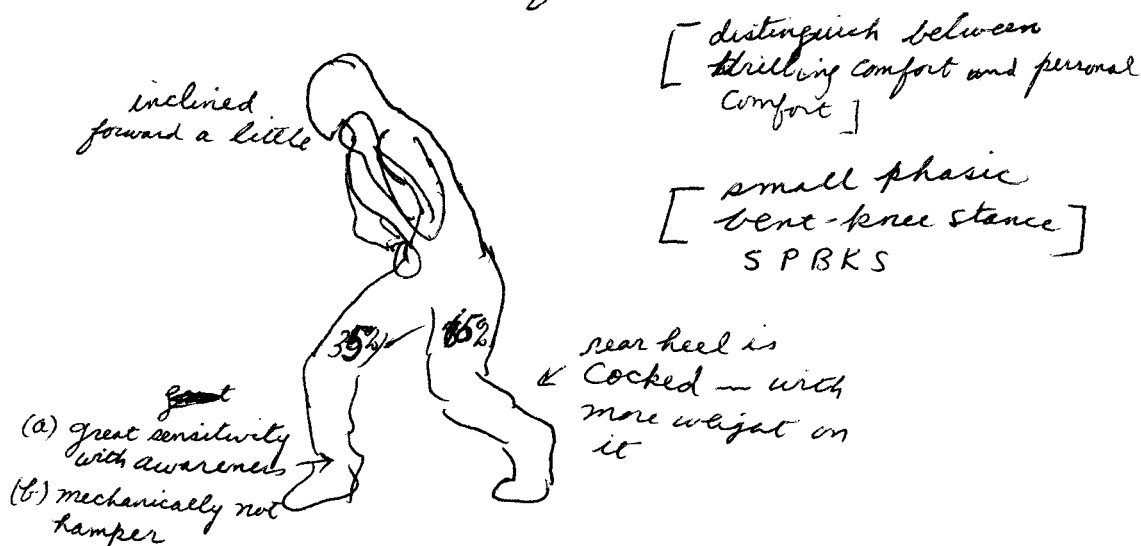 [ distinguish between
thrilling comfort and personal
comfort ]
inclined
forward a little
[ small phasic
bent-knee stance ]
S P B K S
35%
65%
rear heel is
cocked — with
more weight on
it
(a) great sensitivity
with awareness
(b) mechanically not
hamper